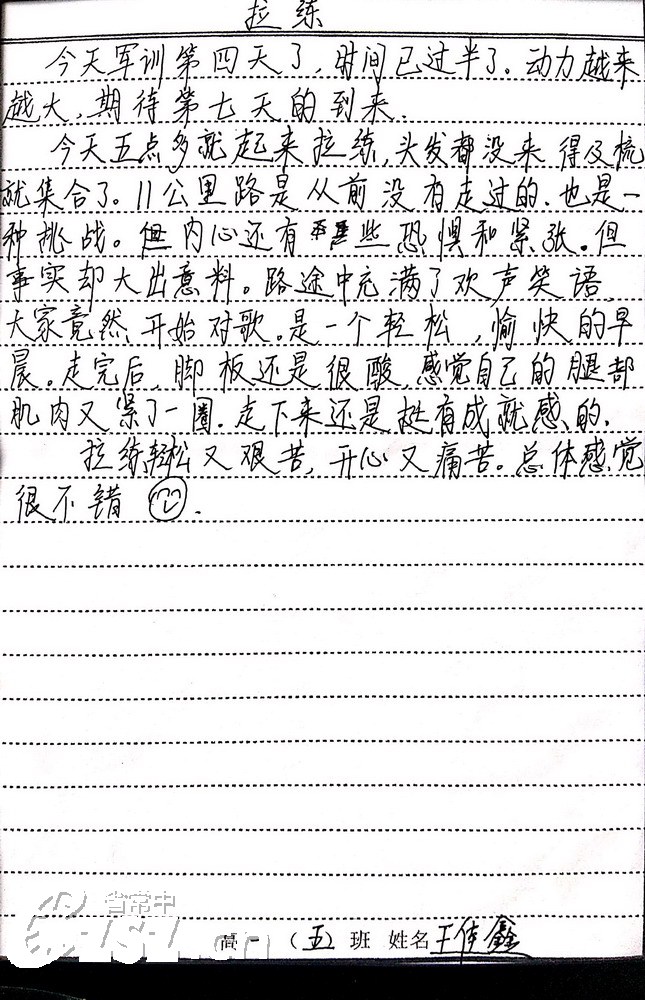 拉练
今天军训第四天了,时间已过半了。动力越来
越大,期待第七天的到来.
今天五点多就起来拉练,头发都没来得及梳
就集合了。11公里路是从前没有走过的.也是一
种挑战。但内心还有些恐惧和紧张。但
事实却大出意料。路途中充满了欢声笑语,
大家竟然开始对歌.是一个轻松,愉快的早
晨。走完后,脚板还是很酸,感觉自己的腿部
肌肉又紧了一圈.走下来还是挺有成就感的.
拉练轻松又艰苦,开心又痛苦。总体感觉
很不错.
省常中
高一(五)班 姓名王佳鑫